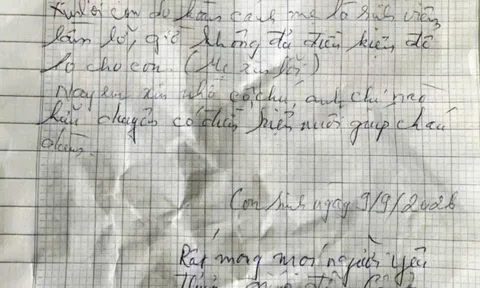 Xin lỗi con do hoàn cảnh mẹ là sinh viên
lầm lỡ, giờ không đủ điều kiện để
lo cho con. (Mẹ xin lỗi)
Nguyện xin nhờ cô chú, anh chị nào
hữu duyên có điều kiện nuôi giúp cháu
Con sinh ngày 9/9/202
Rất mong mọi người yêu